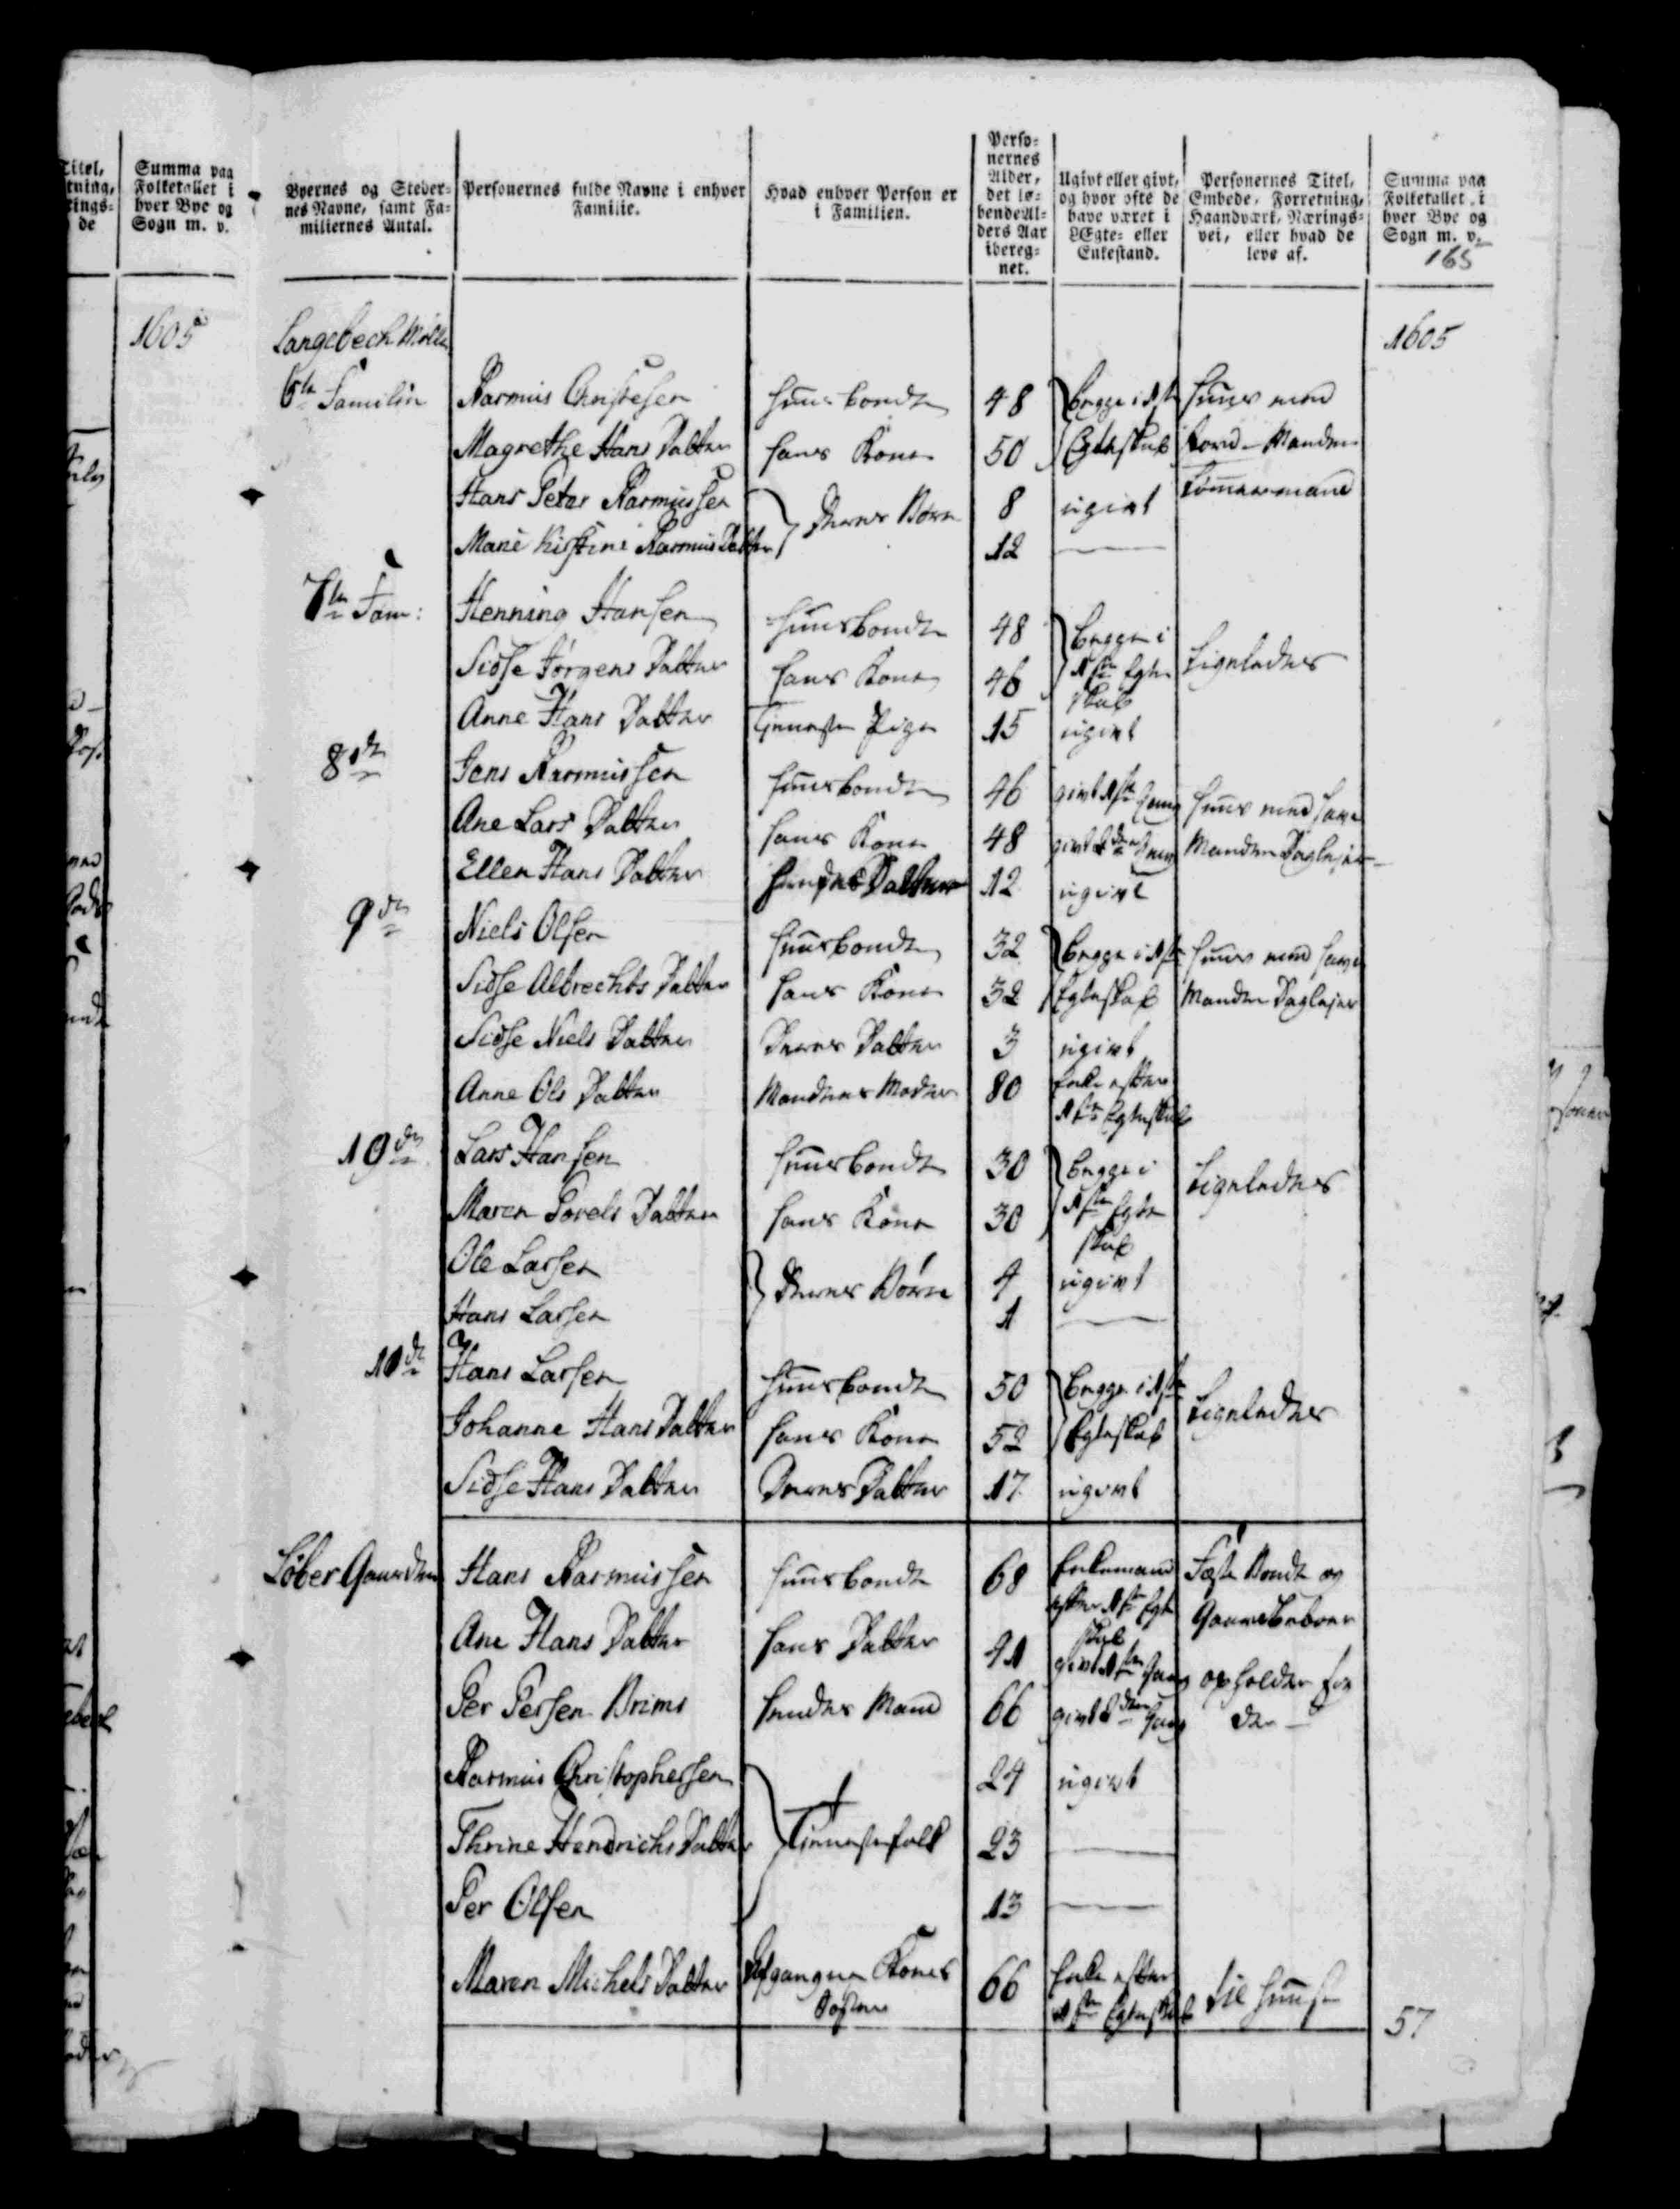 Summa paa
Folketallet i
hver Bye og
Sogn m. v.
1605
Byernes og Steder-
nes Navne, samt Fa-
miliernes Antal.
Personernes fulde Navne i enhver
Familie.
Hvad enhver Person er
i Familien.
Perso-
nernes
Alder,
det lø-
bende Al-
ders Aar
ibereg-
net.
Ugivt eller givt,
og hvor ofte de
have været i
Ægte- eller
Enkestand.
Personernes Titel,
Embede, Forretning,
Haandværk, Nærings-
vei, eller hvad de
leve af.
Summa paa
Folketallet i
hver Bye og
Sogn m. v.
165
Langebech Mølle 1605
6te Familie Rasmus Christesen Huusbonde 48 begge i 1ste Huus med
Magrethe Hans Datter hans Kone 50 Egteskab Jord - Manden
Hans Peter Rasmussen Deres Børn 8 ugivt Tømmermand
Marie Kirstine Rasmus Datter 12 —
7de Fam: Henning Hansen Huusbonde 48 begge i
Sidse Jørgens Datter hans Kone 46 1ste Egte Ligeledes
skab
Anne Hans Datter Tieneste Pige 15 ugivt
8de Jens Rasmussen Huusbonde 46 givt 1ste Gang Huus med Have
Ane Lars Datter hans Kone 48 givt 2den Gang Manden Daglejer
Ellen Hans Datter hendes Datter 12 ugivt
9de Niels Olsen Huusbonde 32 begge i 1ste Huus med Have
Sidse Albrechts Datter hans Kone 32 Egteskab Manden Daglejer
Sidse Niels Datter Deres Datter 3 ugivt
Anne Ols Datter Mandens Moder 80 Enke efter
1ste Egteskab
10de Lars Hansen Huusbonde 30 begge i
Maren Povels Datter hans Kone 30 1ste Egte Ligeledes
skab
Ole Larsen Deres Børn 4 ugivt
Hans Larsen 1 —
11de Hans Larsen Huusbonde 50 begge i 1ste
Johanne Hans Datter hans Kone 52 Egteskab Ligeledes
Sidse Hans Datter Deres Datter 17 ugivt
Løber Gaarden Hans Rasmussen Huusbonde 68 Enkemand Fæste Bonde og
efter 1ste Egte Gaardbeboer
skab
Ane Hans Datter hans Datter 41 givt 1ste Gang opholder sig
Per Persen Brims hendes Mand 66 givt 2den Gang der —
Rasmus Christophersen 24 ugivt
Thrine Hendrichs Datter Tienestefolk 23 —
Per Olsen 13 —
Maren Michels Datter Afgangne Kones 66 Enke efter til Huuse
Søster 1ste Egteskab
57